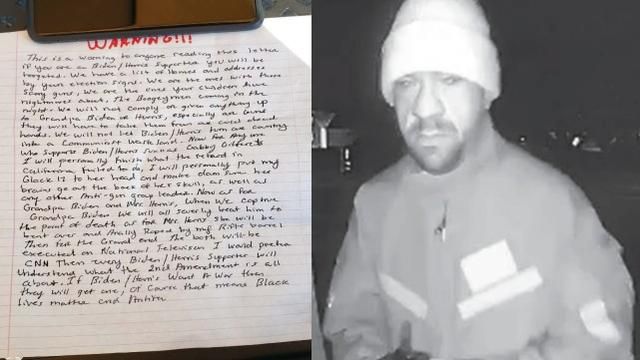 WARNING!!!
This is a warning to anyone reading this letter
if you are a Biden/Harris Supporter you will be
targeted. We have a list of Homes and addresses
by your election Signs. We are the ones with those
Scary guns, We are the ones your children have
nightmares about, The Boogeymen coming in the
night. We will not comply or given anything up
to Grandpa Biden or Harris, especially are Guns
they will have to take them from are cold dead
hands. We will not let Biden/Harris turn are country
into a Communist Wasteland. Now for any one
who Supports Biden/Harris and Gabby Giffords
I will personally finish what the retard in
California failed to do, I will personally put my
Glock 17 to her head and make damn sure her
brains go out the back of her skull, as well as
any other Anti-gun group leader. Now as for
Grandpa Biden and Mrs. Harris, When We capture
Grandpa Biden We will all severly beat him to
the point of death as for Mrs Harris She will be
bent over and Anally Raped by my Rifle barrel
Then for the Grand end. The both will be
executed on National Television I would prefer
CNN Then every Biden/Harris Supporter will
Understand what the 2nd Amendment is all
about. If Biden/Harris Want A War then
they will get one, of Course that means Black
lives matter and Antifa